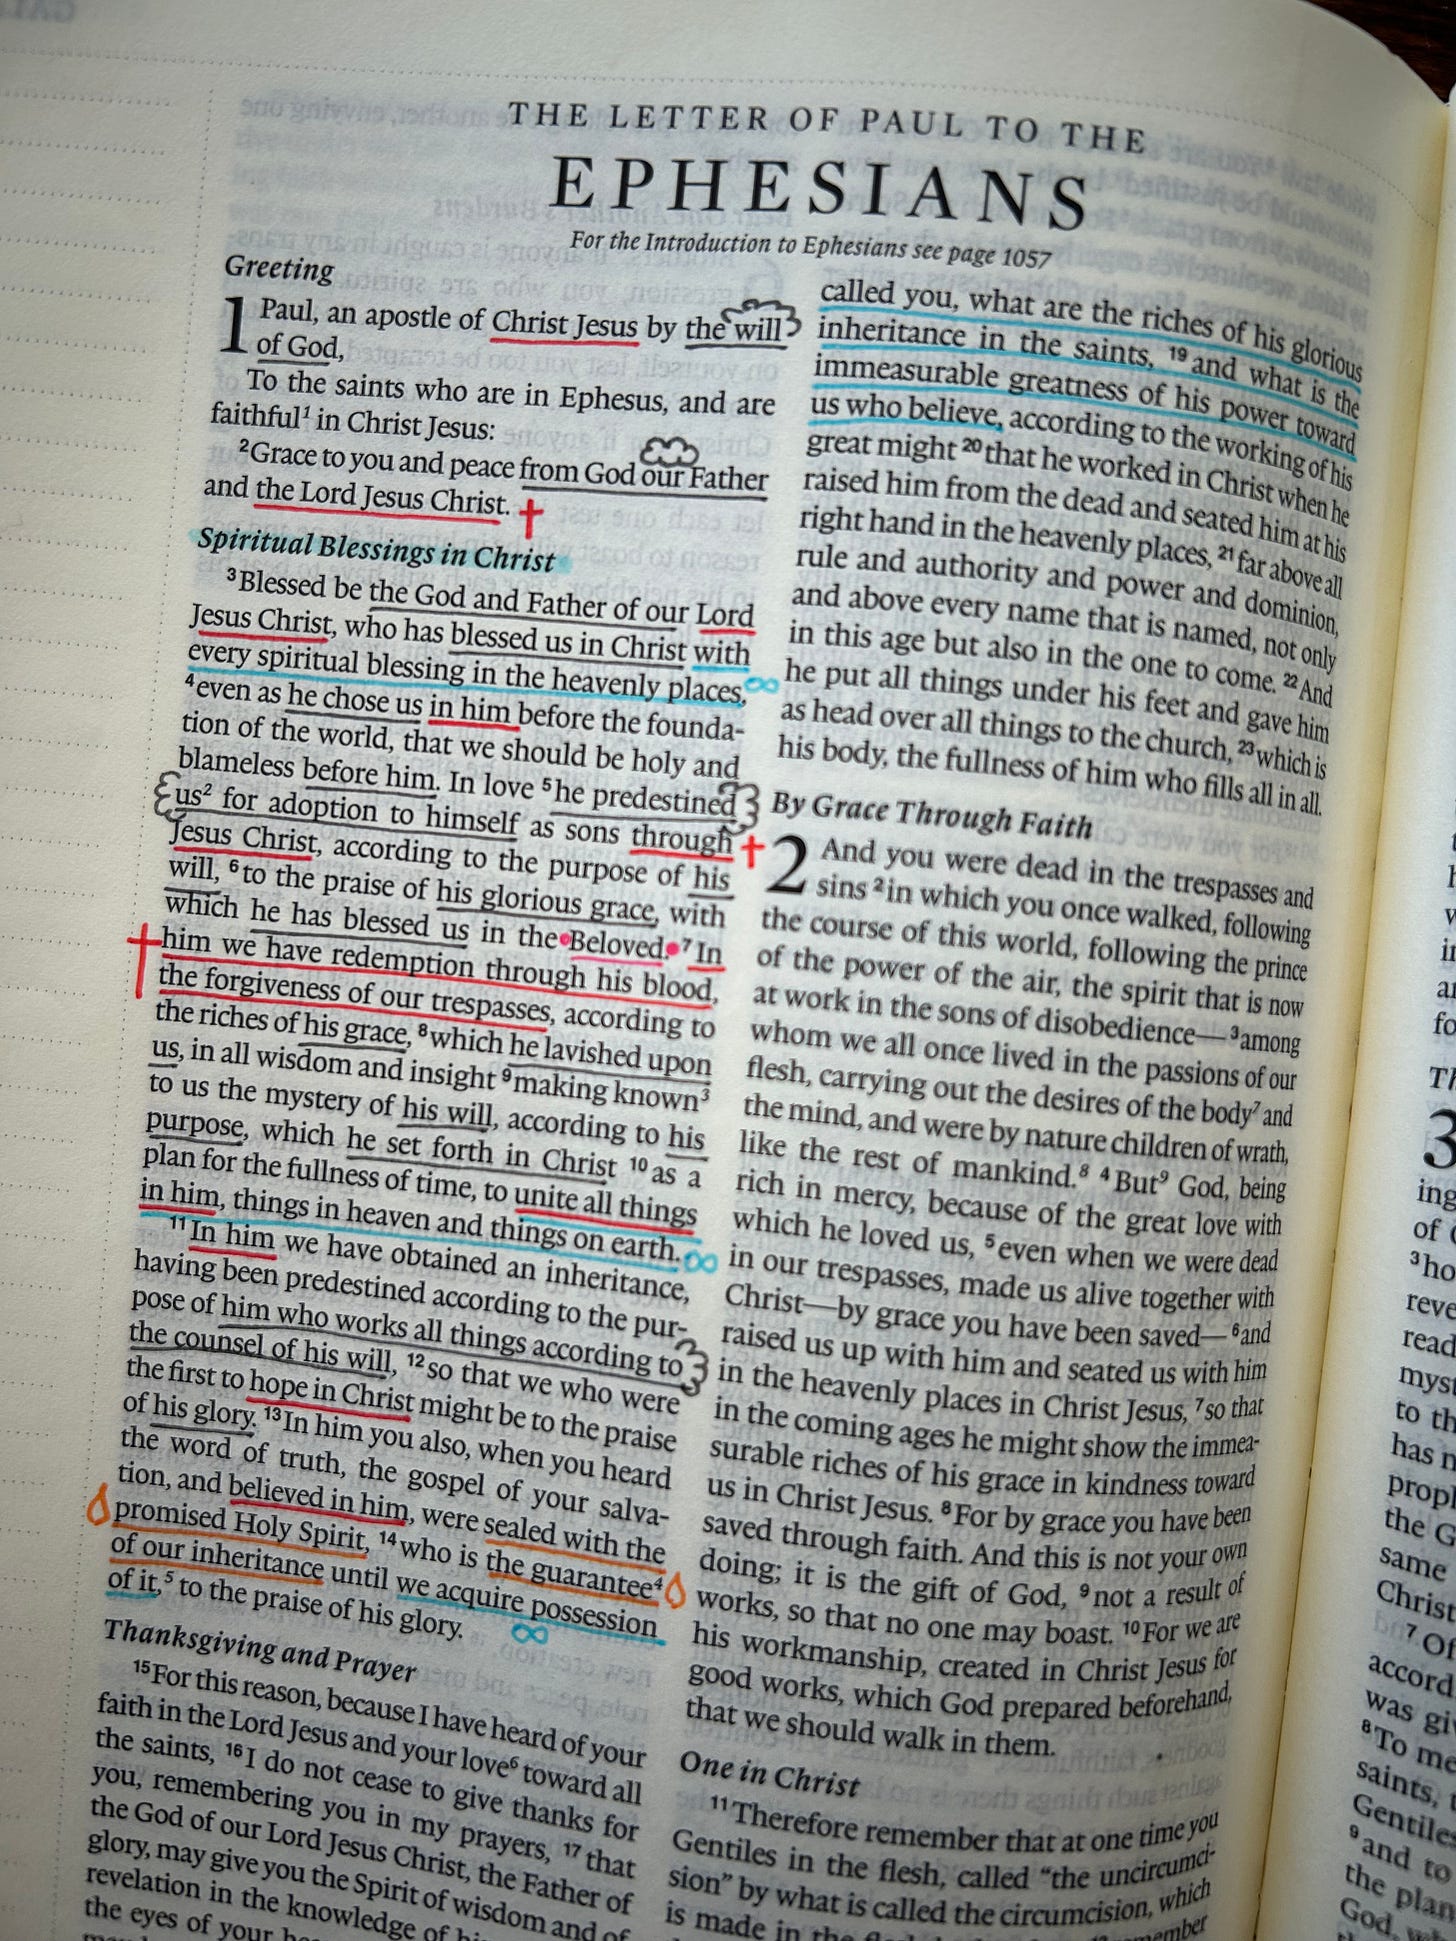 THE LETTER OF PAUL TO THE
EPHESIANS
For the Introduction to Ephesians see page 1057
Greeting
1 Paul, an apostle of Christ Jesus by the will
of God,
To the saints who are in Ephesus, and are
faithful¹ in Christ Jesus:
²Grace to you and peace from God our Father
and the Lord Jesus Christ.
Spiritual Blessings in Christ
³Blessed be the God and Father of our Lord
Jesus Christ, who has blessed us in Christ with
every spiritual blessing in the heavenly places,
⁴even as he chose us in him before the founda-
tion of the world, that we should be holy and
blameless before him. In love ⁵he predestined
us² for adoption to himself as sons through
Jesus Christ, according to the purpose of his
will, ⁶to the praise of his glorious grace, with
which he has blessed us in the Beloved. ⁷In
him we have redemption through his blood,
the forgiveness of our trespasses, according to
the riches of his grace, ⁸which he lavished upon
us, in all wisdom and insight ⁹making known³
to us the mystery of his will, according to his
purpose, which he set forth in Christ ¹⁰as a
plan for the fullness of time, to unite all things
in him, things in heaven and things on earth.
¹¹In him we have obtained an inheritance,
having been predestined according to the pur-
pose of him who works all things according to
the counsel of his will, ¹²so that we who were
the first to hope in Christ might be to the praise
of his glory. ¹³In him you also, when you heard
the word of truth, the gospel of your salva-
tion, and believed in him, were sealed with the
promised Holy Spirit, ¹⁴who is the guarantee⁴
of our inheritance until we acquire possession
of it,⁵ to the praise of his glory.
Thanksgiving and Prayer
¹⁵For this reason, because I have heard of your
faith in the Lord Jesus and your love⁶ toward all
the saints, ¹⁶I do not cease to give thanks for
you, remembering you in my prayers, ¹⁷that
the God of our Lord Jesus Christ, the Father of
glory, may give you the Spirit of wisdom and of
revelation in the knowledge of
the eyes of your
called you, what are the riches of his glorious
inheritance in the saints, ¹⁹and what is the
immeasurable greatness of his power toward
us who believe, according to the working of his
great might ²⁰that he worked in Christ when he
raised him from the dead and seated him at his
right hand in the heavenly places, ²¹far above all
rule and authority and power and dominion,
and above every name that is named, not only
in this age but also in the one to come. ²²And
he put all things under his feet and gave him
as head over all things to the church, ²³which is
his body, the fullness of him who fills all in all.
By Grace Through Faith
2 And you were dead in the trespasses and
sins ²in which you once walked, following
the course of this world, following the prince
of the power of the air, the spirit that is now
at work in the sons of disobedience—³among
whom we all once lived in the passions of our
flesh, carrying out the desires of the body⁷ and
the mind, and were by nature children of wrath,
like the rest of mankind.⁸ ⁴But⁹ God, being
rich in mercy, because of the great love with
which he loved us, ⁵even when we were dead
in our trespasses, made us alive together with
Christ—by grace you have been saved—⁶and
raised us up with him and seated us with him
in the heavenly places in Christ Jesus, ⁷so that
in the coming ages he might show the immea-
surable riches of his grace in kindness toward
us in Christ Jesus. ⁸For by grace you have been
saved through faith. And this is not your own
doing; it is the gift of God, ⁹not a result of
works, so that no one may boast. ¹⁰For we are
his workmanship, created in Christ Jesus for
good works, which God prepared beforehand,
that we should walk in them.
One in Christ
¹¹Therefore remember that at one time you
Gentiles in the flesh, called “the uncircumci-
sion” by what is called the circumcision, which
is made in the flesh
3
ing
of
³ho
reve
read
myst
to th
has n
proph
the G
same
Christ
⁷Of
accord
was giv
⁸To me
saints,
Gentiles
⁹and to
the plan
God,